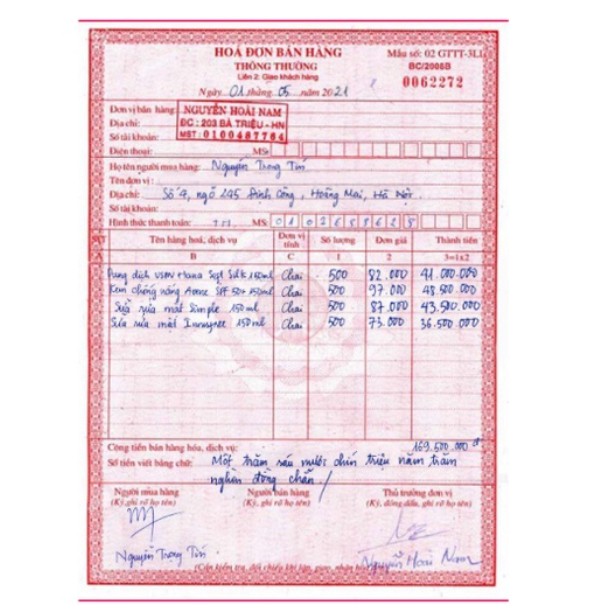 HOÁ ĐƠN BÁN HÀNG
THÔNG THƯỜNG
Liên 2: Giao khách hàng
Mẫu số: 02 GTTT-3LL
BC/2008B
0062272
Ngày 01 tháng 05 năm 2021
Đơn vị bán hàng:
NGUYỄN HOÀI NAM
Địa chỉ:
ĐC : 203 BÀ TRIỆU - HN
Số tài khoản:
MST : 0100487764
Điện thoại: MS:
Họ tên người mua hàng: Nguyễn Trọng Tín
Tên đơn vị:
Địa chỉ: Số 4, ngõ 245 Định Công, Hoàng Mai, Hà Nội.
Số tài khoản:
Hình thức thanh toán: MS:
STT Tên hàng hoá, dịch vụ Đơn vị tính Số lượng Đơn giá Thành tiền
B C 1 2 3=1x2
Dung dịch Hana Sept 150ml Chai 500 82.000 41.000.000
Kem chống nắng SPF 50+ 150ml Chai 500 97.000 48.500.000
Sữa rửa mặt Simple 150ml Chai 500 87.000 43.500.000
Sữa rửa mặt 150ml Chai 500 73.000 36.500.000
Cộng tiền bán hàng hóa, dịch vụ: 169.500.000 đ
Số tiền viết bằng chữ: Một trăm sáu mươi chín triệu năm trăm
nghìn đồng chẵn /
Người mua hàng Người bán hàng Thủ trưởng đơn vị
(Ký, ghi rõ họ tên) (Ký, ghi rõ họ tên) (Ký, đóng dấu, ghi rõ họ tên)
Nguyễn Trọng Tín Nguyễn Hoài Nam
(Cần kiểm tra, đối chiếu khi lập, giao, nhận hoá đơn)